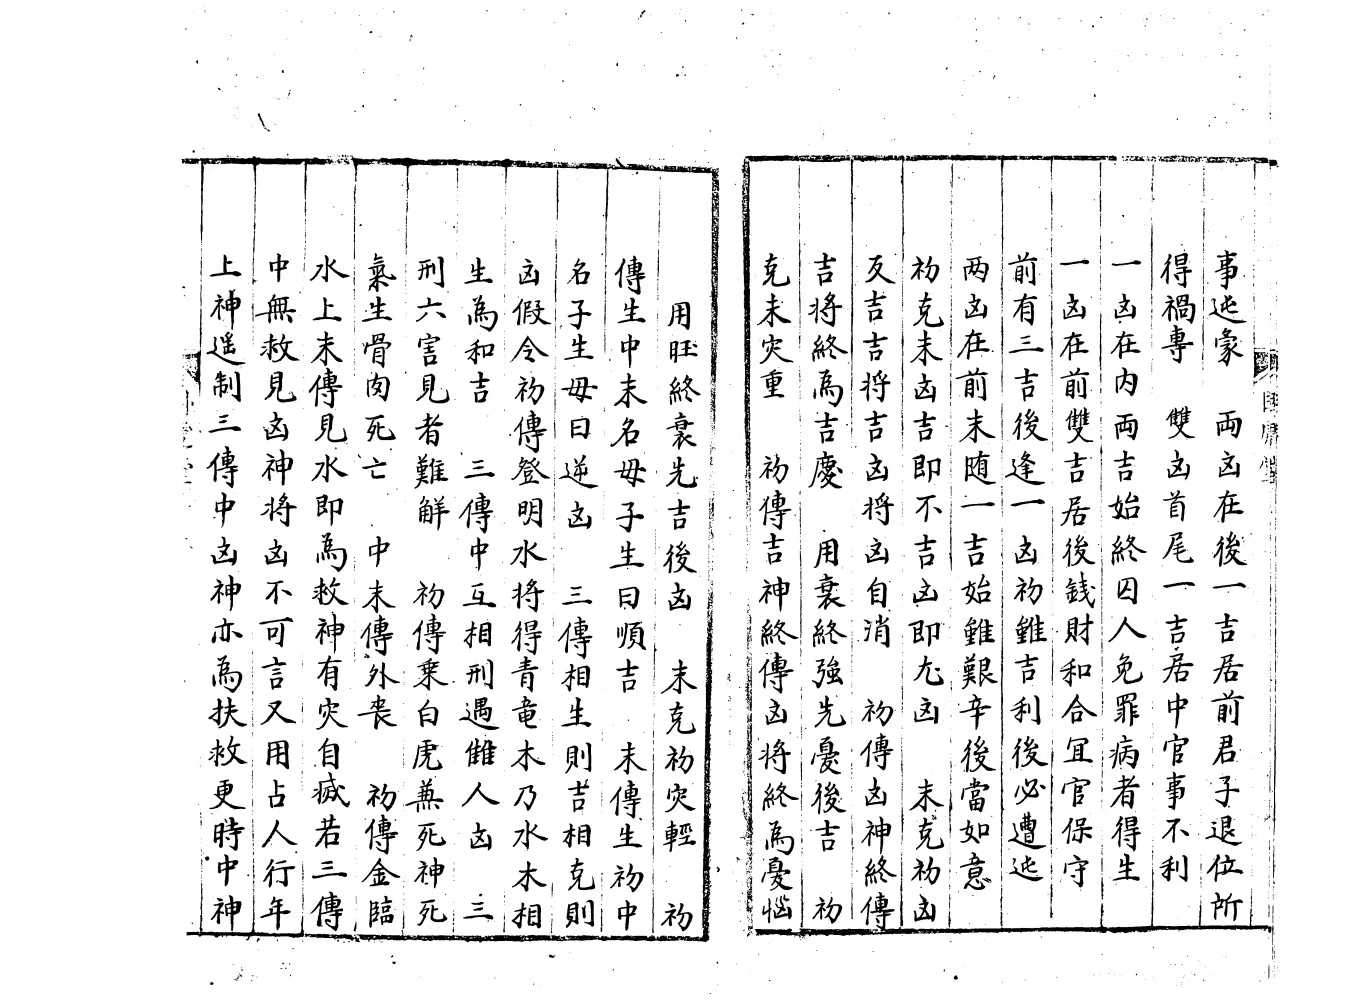 事迍蒙　両凶在後一吉居前君子退位所
得禍專　雙凶首尾一吉居中官事不利
一凶在内両吉始終囚人免罪病者得生
一凶在前雙吉居後錢財和合冝官保守
前有三吉後逢一凶初雖吉利後必遭迍
两凶在前末随一吉始雖艱辛後當如意
初克末凶吉即不吉凶即尤凶　末克初凶
反吉吉将吉凶将凶自消　初傳凶神終傳
吉將終為吉慶　用衰終強先憂後吉　初
克末灾重　初傳吉神終傳凶将終為憂惱
用旺終衰先吉後凶　末克初灾輕　初
傳生中末名母子生曰順吉　末傳生初中
名子生母曰逆凶　三傳相生則吉相克則
凶假令初傳登明水将得青竜木乃水木相
生為和吉　三傳中互相刑遇雠人凶　三
刑六害見者難觧　初傳乗白虎𠔥死神死
氣生骨肉死亡　中末傳外喪　初傳金臨
水上末傳見水即為救神有灾自㓕若三傳
中無救見凶神将凶不可言又用占人行年
上神遥制三傳中凶神亦為扶救更時中神